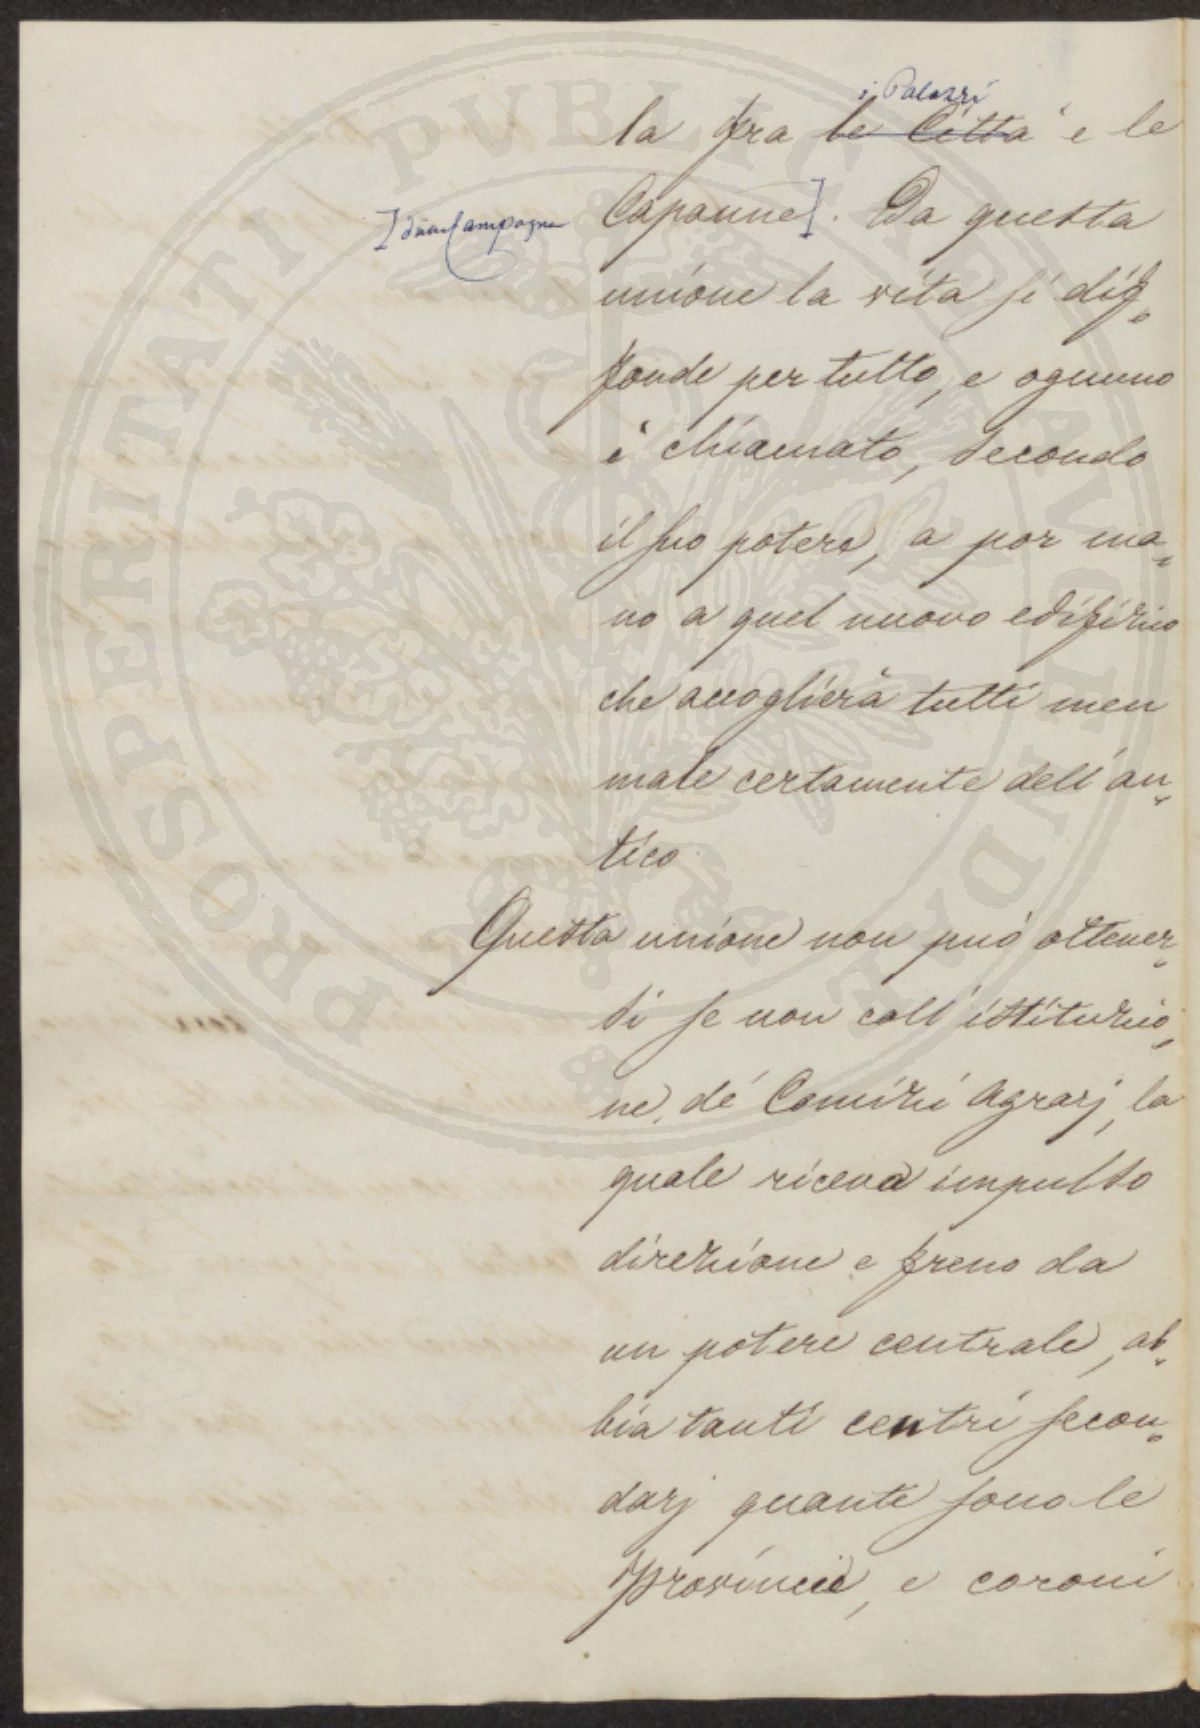 i Palazzi
la fra le Città e le
] d'una Campagna
Capanne]. Da questa
unione la vita si dif=
fonde per tutto, e ognuno
è chiamato, secondo
il suo potere, a por ma=
no a quel nuovo edifizio
che accoglierà tutti men
male certamente dell'an=
tico
Questa unione non può ottener=
si se non coll'istituzio=
ne, de' Comizi Agrarj, la
quale riceva impulso
direzione e freno da
un potere centrale, ab=
bia tanti centri secon=
darj quante sono le
Provincie, e coroni
PROSPERITATI PVBLICAE AVGENDAE